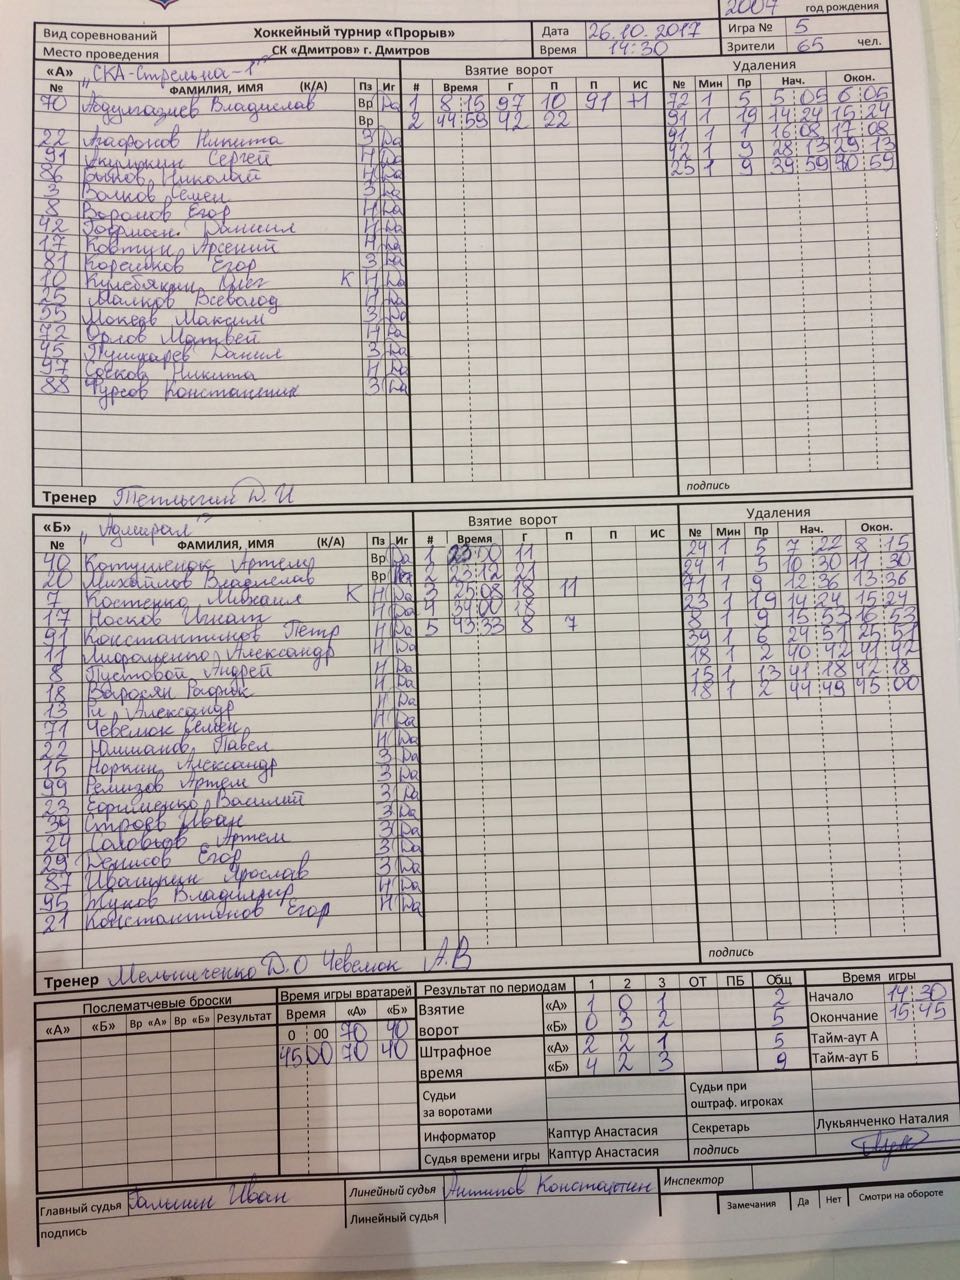 2007 год рождения
Вид соревнований Хоккейный турнир «Прорыв» Дата 26.10.2017 Игра № 5
Место проведения СК «Дмитров» г. Дмитров Время 14:30 Зрители 65 чел.
«А» "СКА-Стрельна-1" Взятие ворот Удаления
№ ФАМИЛИЯ, ИМЯ (К/А) Пз Иг # Время Г П П ИС № Мин Пр Нач. Окон.
70 Владислав Вр Да 1 8 15 97 10 91 +1 72 1 5 5 05 6 05
Вр 2 44 59 42 22 91 1 19 14 24 15 24
22 Агафонов Никита З Да 91 1 1 16 08 17 08
91 Акулкин Сергей Н Да 42 1 9 28 13 29 13
86 Быков Николай Н Да 25 1 9 39 59 40 59
3 Волков Семен З Да
8 Воронов Егор Н Да
42 Даниил Н Да
17 Ковтун Арсений Н Да
81 Корешков Егор З Да
10 Кулебякин Олег К Н Да
25 Малков Всеволод Н Да
55 Мокеев Максим З Да
72 Орлов Матвей Н Да
45 Пушкарев Данил З Да
97 Сосков Никита Н Да
88 Фурсов Константин З Да
Тренер Д. И подпись
«Б» "Адмирал" Взятие ворот Удаления
№ ФАМИЛИЯ, ИМЯ (К/А) Пз Иг # Время Г П П ИС № Мин Пр Нач. Окон.
40 Котушенок Артем Вр Да 1 23 00 11 24 1 5 7 22 8 15
20 Михайлов Владислав Вр 2 23 12 21 24 1 5 10 30 11 30
7 Костенко Михаил К Н Да 3 25 08 18 11 71 1 9 12 36 13 36
17 Носков Игнат Н Да 4 39 00 18 23 1 19 14 24 15 24
91 Константинов Петр Н Да 5 43 33 8 7 8 1 9 15 53 16 53
11 Александр Н Да 39 1 6 24 51 25 51
8 Пустовой Андрей Н Да 18 1 2 40 42 41 42
18 Н Да 15 1 13 41 18 42 18
13 Ги Александр Н Да 18 1 2 44 49 45 00
71 Чевелюк Семен Н Да
22 Павел Н Да
15 Норкин Александр З Да
99 Ремизов Артем З Да
23 Ефрименко Василий З Да
39 Строев Иван З Да
24 Соловьёв Артем З Да
29 Денисов Егор З Да
87 Ивашкин Ярослав Н Да
95 Жуков Владимир Н Да
21 Константинов Егор
Тренер Мельниченко Д.О Чевелюк А.В подпись
Послематчевые броски Время игры вратарей Результат по периодам 1 2 3 ОТ ПБ Общ Время игры
«А» «Б» Вр «А» Вр «Б» Результат Время «А» «Б» Взятие ворот «А» 1 0 1 2 Начало 14 30
0 00 70 40 «Б» 0 3 2 5 Окончание 15 45
45 00 70 40 Штрафное время «А» 2 2 1 5 Тайм-аут А
«Б» 4 2 3 9 Тайм-аут Б
Судьи за воротами Судьи при оштраф. игроках
Информатор Каптур Анастасия Секретарь Лукьянченко Наталия
Судья времени игры Каптур Анастасия подпись
Главный судья Галынин Иван Линейный судья Антипов Константин Инспектор
подпись Линейный судья Замечания Да Нет Смотри на обороте